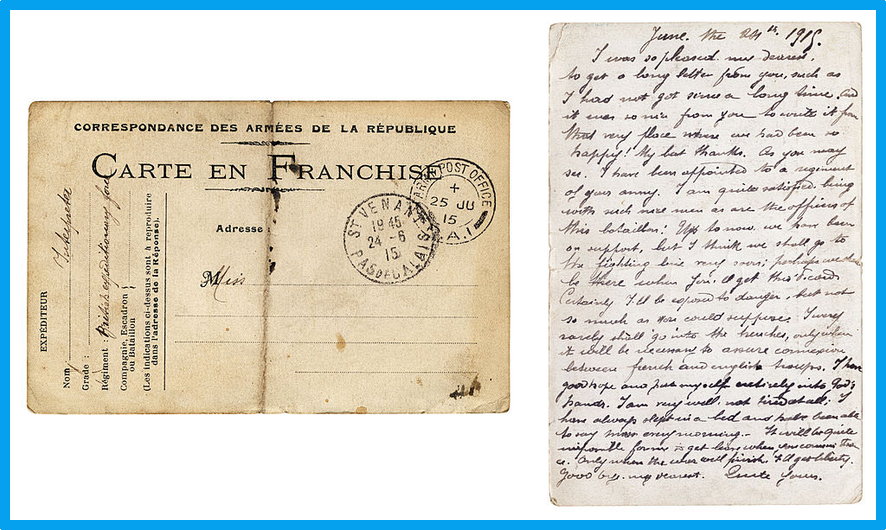 CORRESPONDANCE DES ARMÉES DE LA RÉPUBLIQUE
CARTE EN FRANCHISE
ARMY POST OFFICE
+
25 JU
15
A.1
ST VENANT
19 45
24 - 6
15
PAS DE CALAIS
Adresse
Miss
EXPÉDITEUR
Nom
Grade :
Régiment : British expeditionary force
Compagnie, Escadron
ou Bataillon
(Les indications ci-dessus sont à reproduire
dans l'adresse de la Réponse).
June. the 24th. 1915.
I was so pleased my dearest,
to get a long letter from you, such as
I had not got since a long time, and
it was so nice from you to write it from
that very place where we had been so
happy! My best thanks. As you may
see. I have been appointed to a regiment
of your army. I am quite satisfied being
with such nice men as are the officers of
this batallion! Up to now, we have been
on support, but I think we shall go to
the fighting line very soon; perhaps we shall
be there when you'll get this card.
Certainly I'll be exposed to danger, but not
so much as you could suppose. I very
rarely shall go into the trenches, only when
it will be necessary to assure connexion
between french and english troops. I have
good hope and put myself entirely into God's
hands. I am very well. not tired at all: I
have always slept in a bed and have been able
to say mass every morning.. It will be quite
impossible for me to get leave when you
Only when the war will finish I'll get liberty.
Good bye. my dearest. Quite yours.